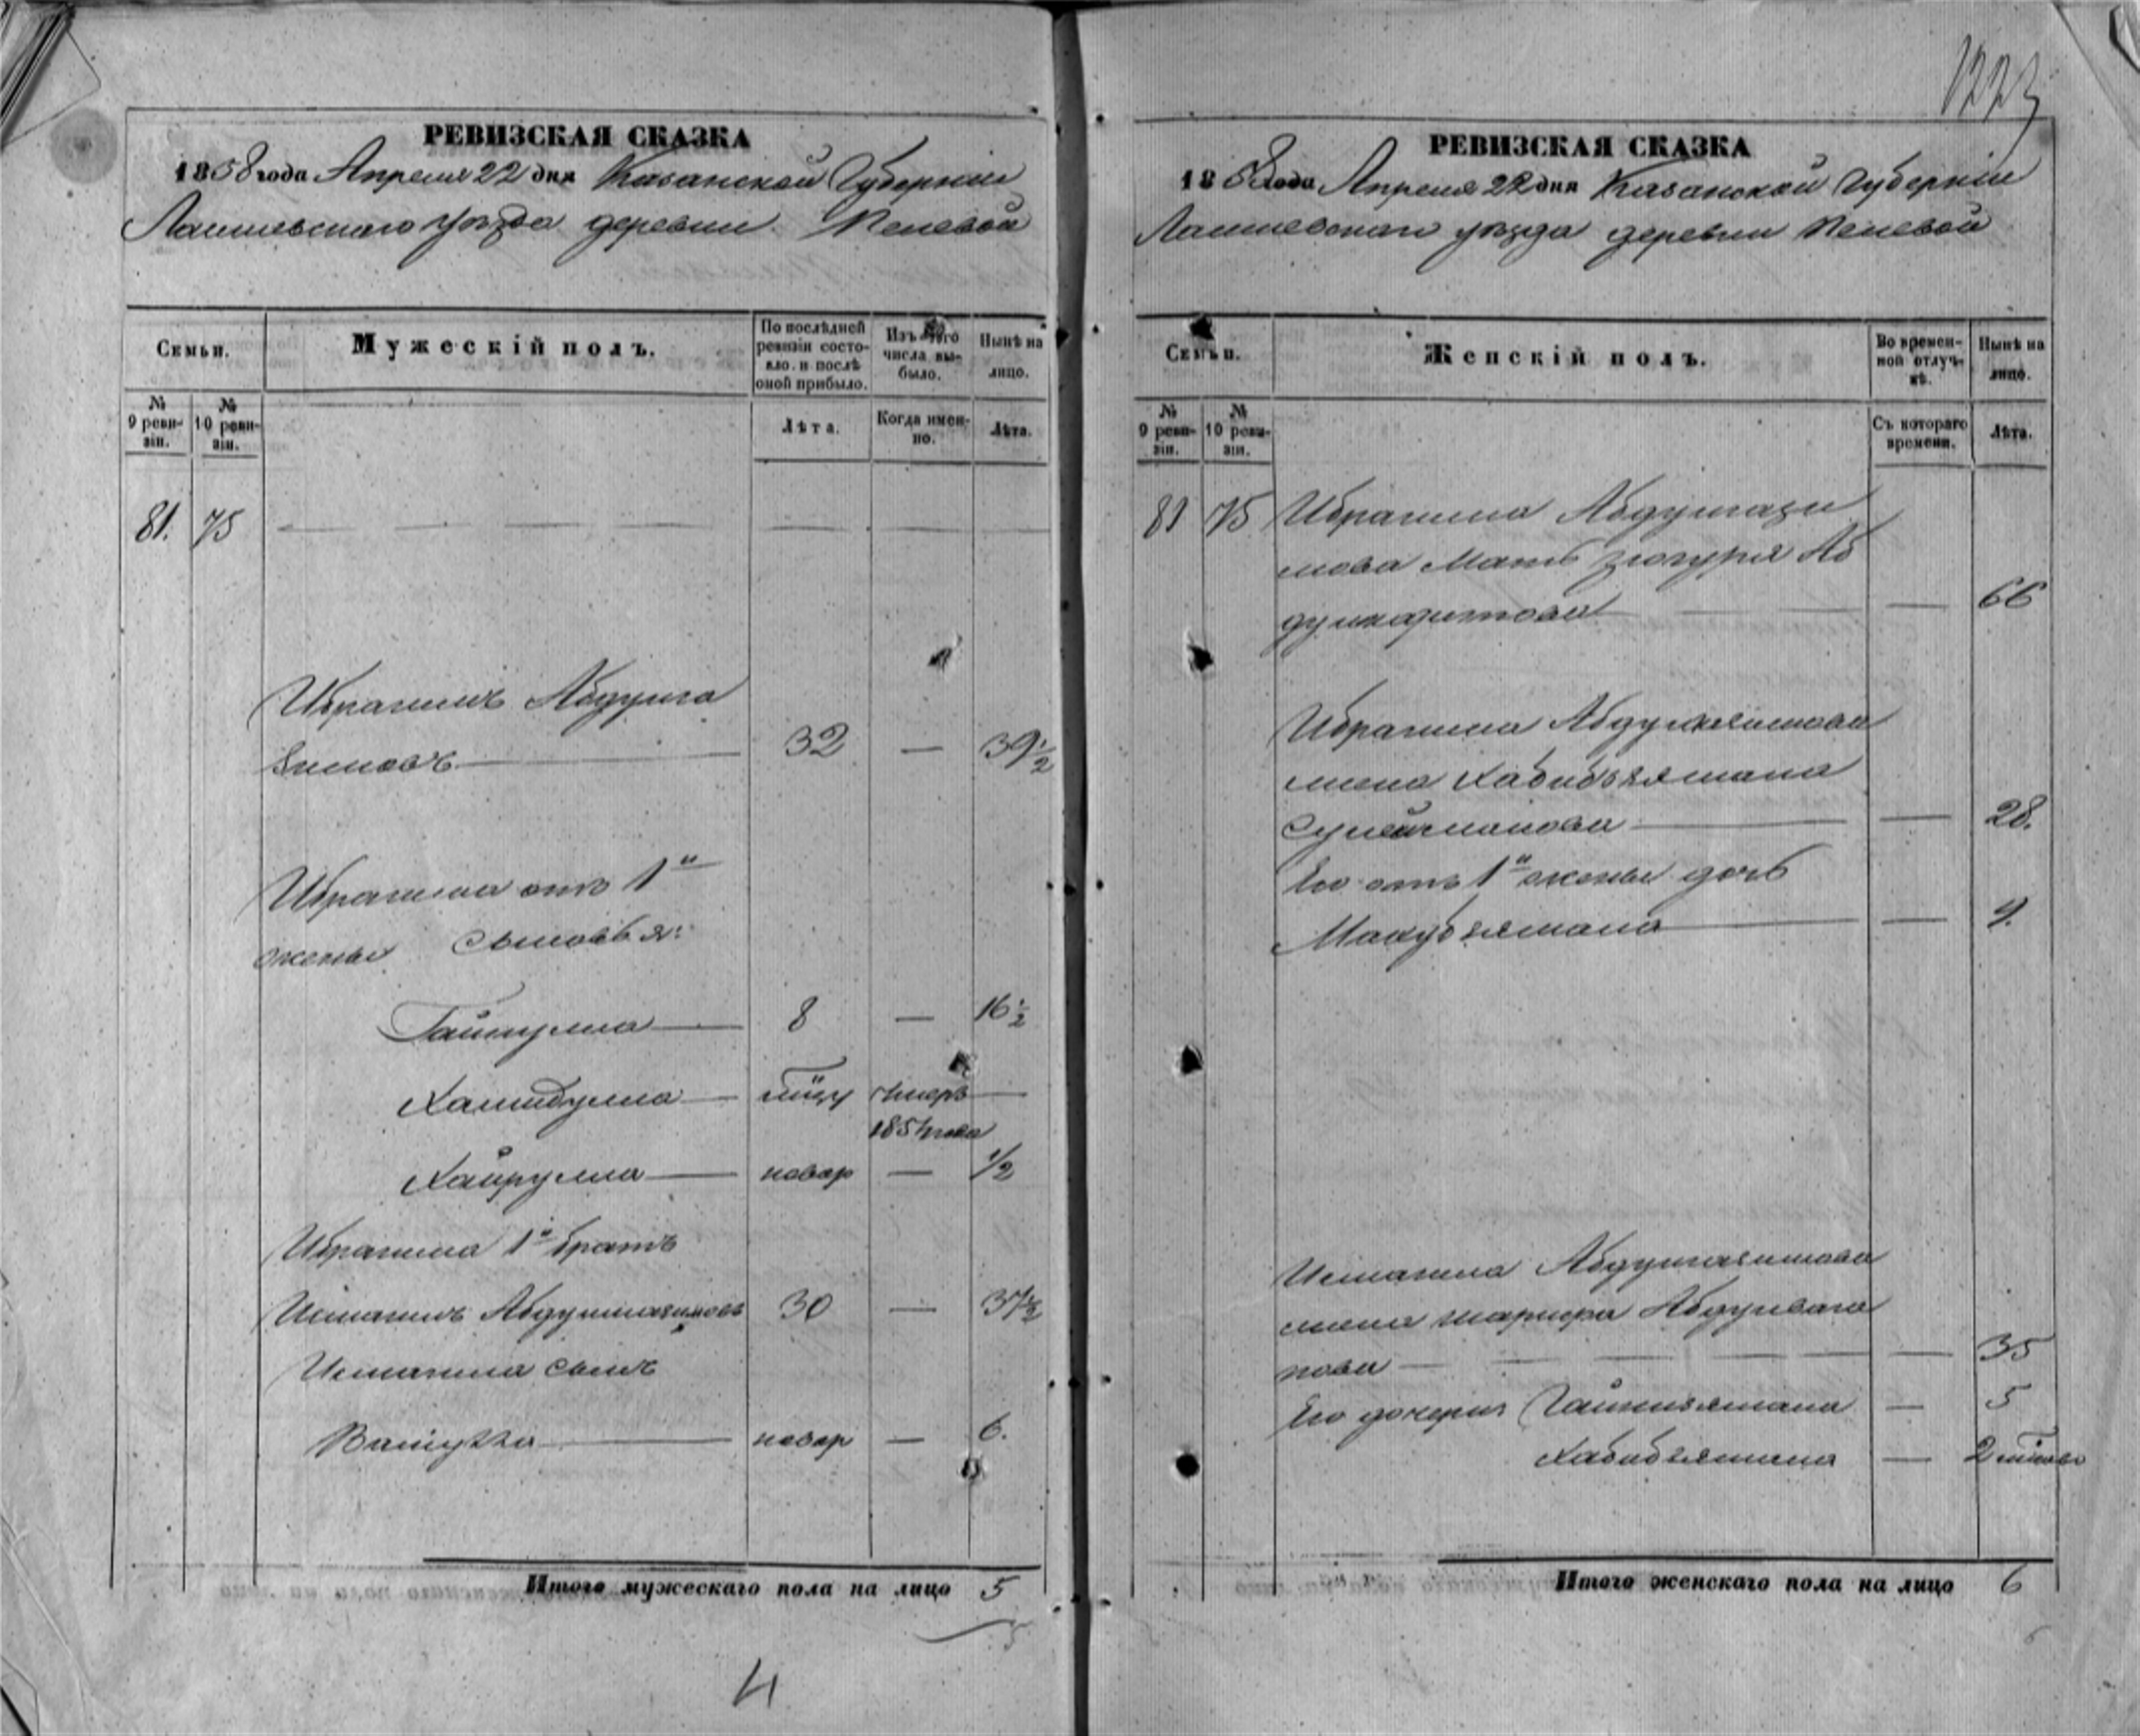 1223
РЕВИЗСКАЯ СКАЗКА
1858 года Апреля 22 дня Казанской Губернии
Лаишевскаго уѣзда деревни
Семьи.
Мужескій полъ.
По послѣдней ревизіи состояло и послѣ оной прибыло.
Изъ того числа выбыло.
Нынѣ на лицо.
№ 9 ревизіи.
№ 10 ревизіи.
Лѣта.
Когда именно.
Лѣта.
81. 75
Ибрагимъ Абдулга
зимовъ 32 — 39½
Ибрагима отъ 1й
жены сыновья:
8 — 16½
умеръ
1854 года
Хайрулла новор — ½
Ибрагима 1й братъ
Исмагилъ 30 — 37½
Исмагила сынъ
новор — 6.
Итого мужескаго пола на лицо 5
5
4
РЕВИЗСКАЯ СКАЗКА
1858 года Апреля 22 дня Казанской Губерніи
Лаишевскаго уѣзда деревни
Семьи.
Женскій полъ.
Во временной отлучкѣ.
Нынѣ на лицо.
№ 9 ревизіи.
№ 10 ревизіи.
Съ котораго времени.
Лѣта.
81 75 Ибрагима Абдулгази
мова Мать Аб
66
Ибрагима Абдулгазимова
жена Хабибзямала
Сулейманова — 28.
Его отъ 1й жены дочь
Махубзямала
Исмагила Абдулгазимова
жена Абдулвага
пова — 35
Его дочери — 5
Хабибзямала — 2
Итого женскаго пола на лицо 6
6